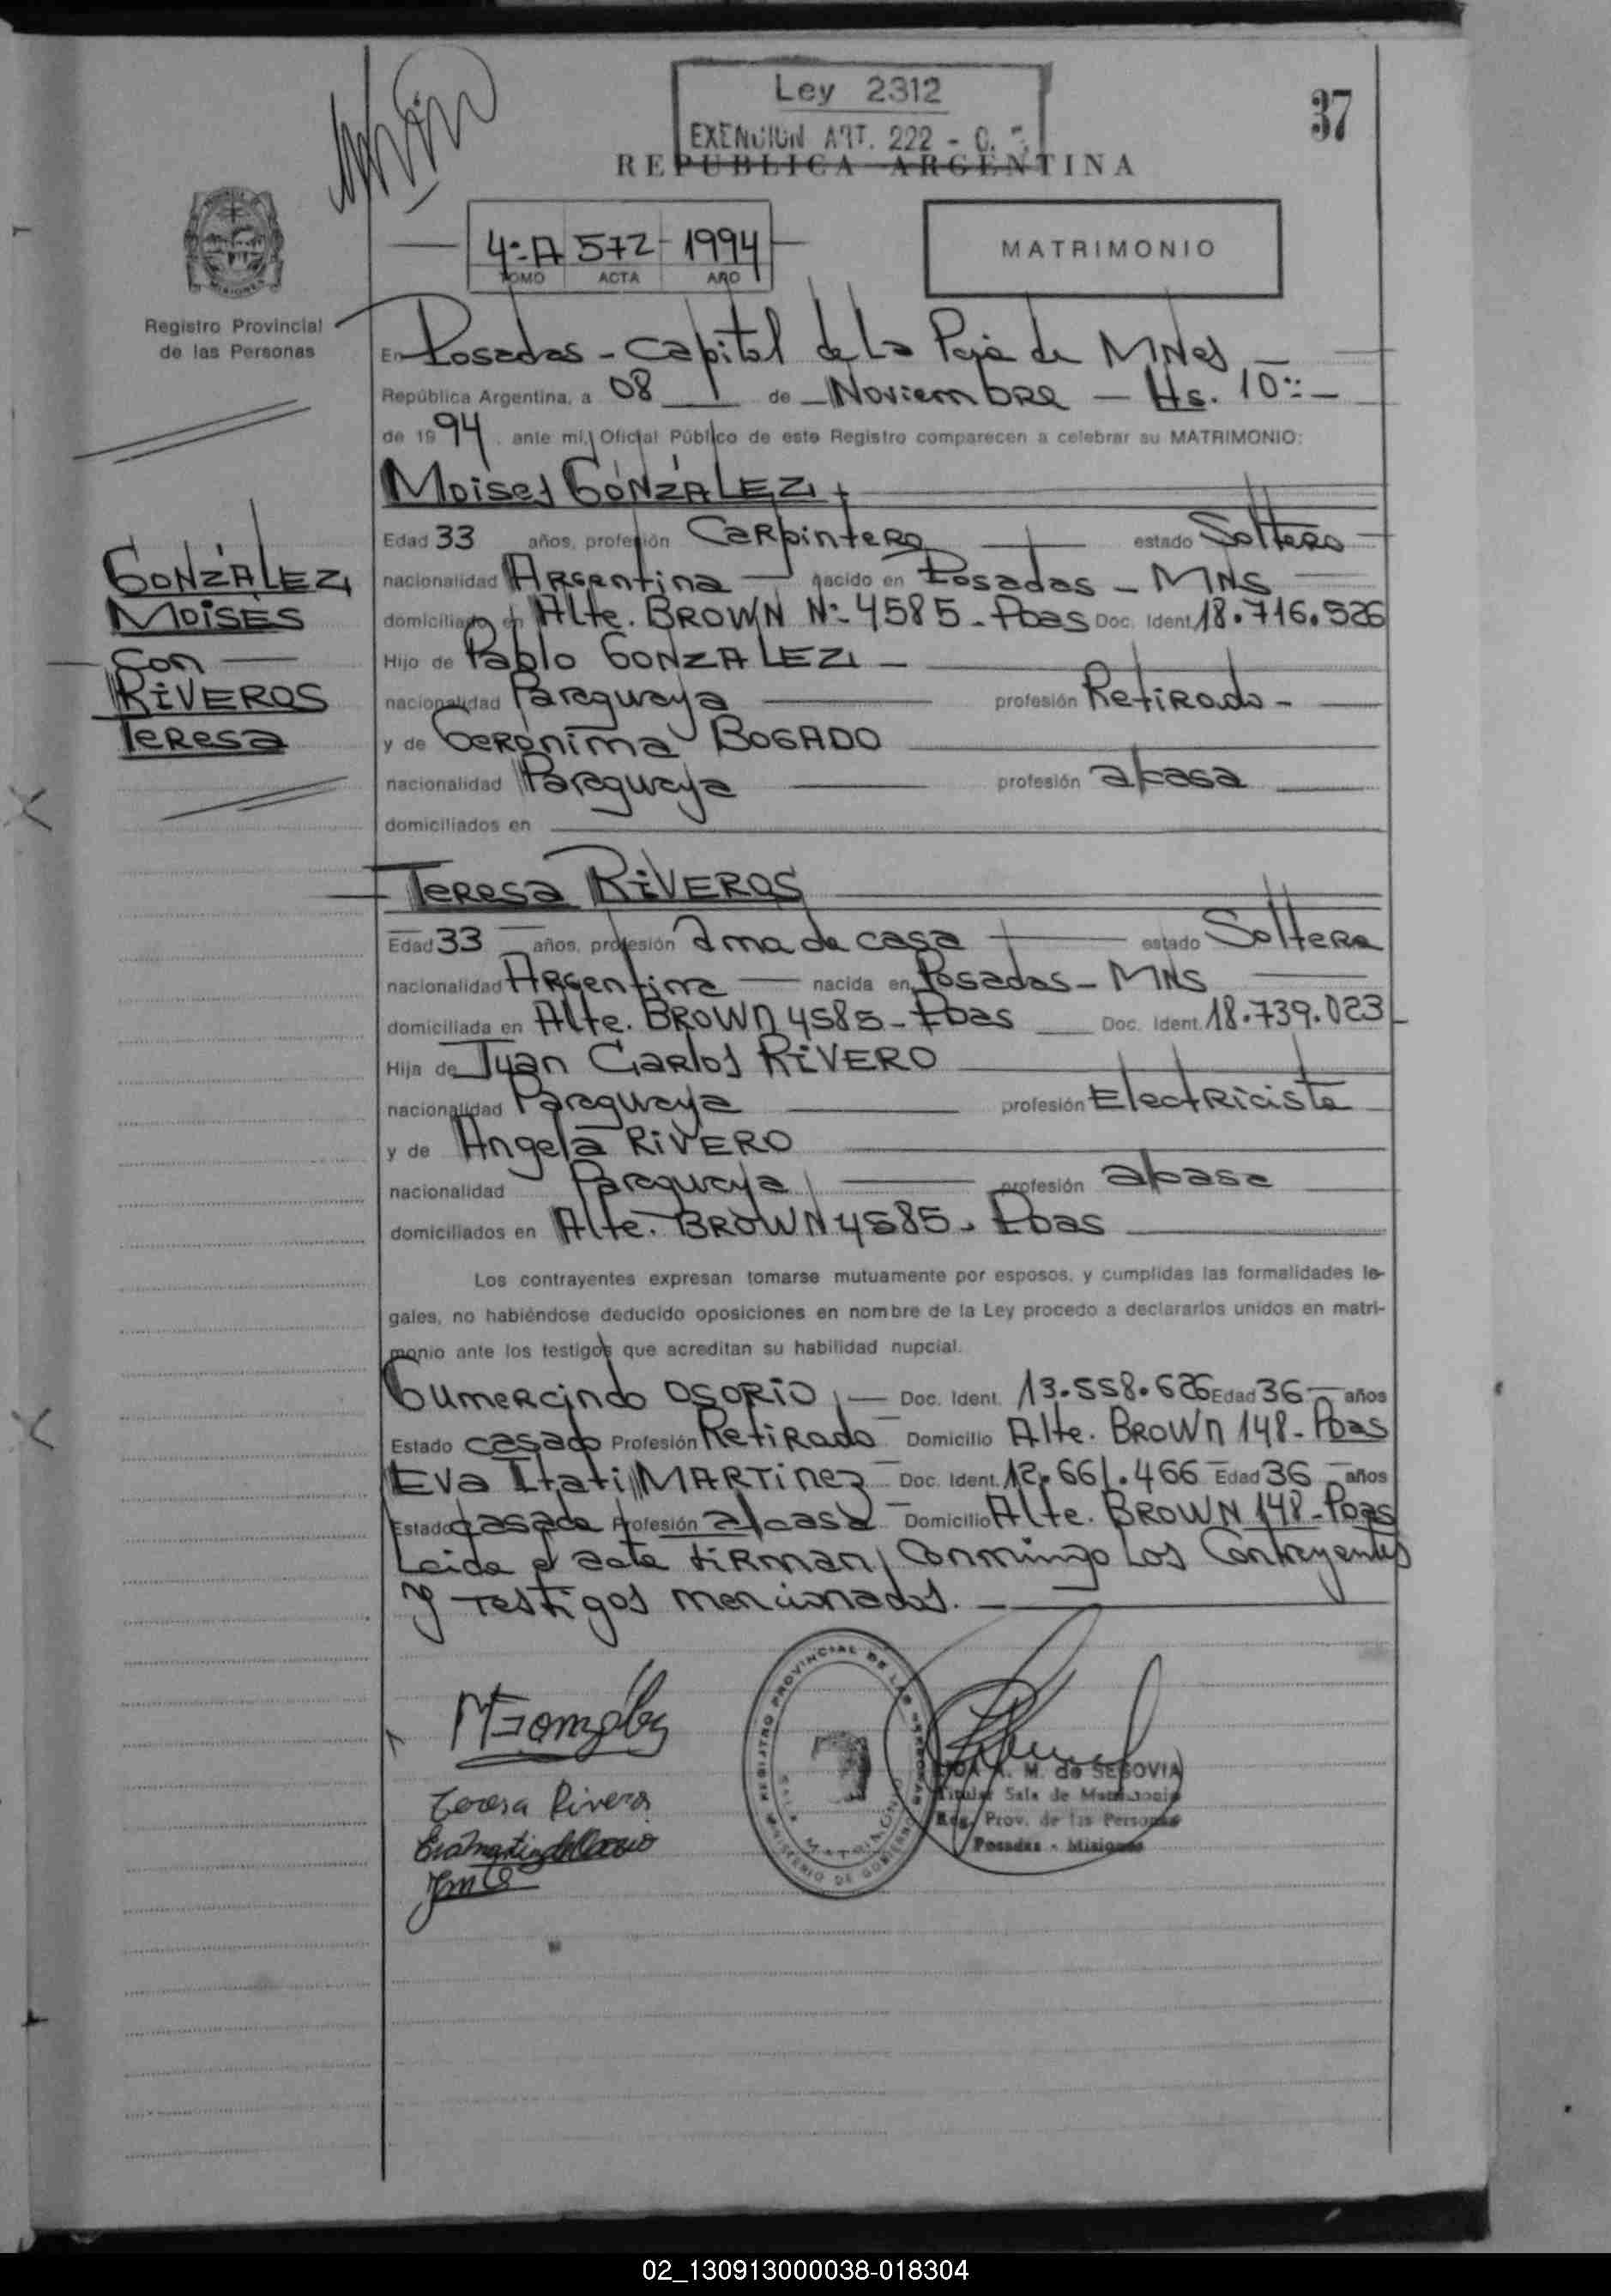 Ley 2312
EXENCION ART. 222 - C.
37
REPUBLICA ARGENTINA
4º A 572 1994
TOMO ACTA AÑO
MATRIMONIO
Registro Provincial
de las Personas
En Posadas - Capital de La Pcja de MNes
República Argentina, a 08 de Noviembre - Hs. 10:
de 1994, ante mí, Oficial Público de este Registro comparecen a celebrar su MATRIMONIO:
Moises GONZALEZ
Edad 33 años, profesión Carpintero estado Soltero
nacionalidad Argentina nacido en Posadas - MNS
domiciliado en Alte. BROWN Nº 4585 - Pdas Doc. Ident. 18.716.526
Hijo de Pablo GONZALEZ
nacionalidad Paraguaya profesión Retirado -
y de Geronima BOGADO
nacionalidad Paraguaya profesión a/casa
domiciliados en
GONZALEZ
MOISES
con
RIVEROS
Teresa
Teresa RIVEROS
Edad 33 años, profesión ama de casa estado Soltera
nacionalidad Argentina nacida en Posadas - MNS
domiciliada en Alte. BROWN 4585 - Pdas Doc. Ident. 18.739.023
Hija de Juan Carlos RIVERO
nacionalidad Paraguaya profesión Electricista
y de Angela RIVERO
nacionalidad Paraguaya profesión a/casa
domiciliados en Alte. BROWN 4585 - Pdas
Los contrayentes expresan tomarse mutuamente por esposos, y cumplidas las formalidades le-
gales, no habiéndose deducido oposiciones en nombre de la Ley procedo a declararlos unidos en matri-
monio ante los testigos que acreditan su habilidad nupcial.
Gumercindo OSORIO Doc. Ident. 13.558.626 Edad 36 años
Estado casado Profesión Retirado Domicilio Alte. BROWN 148 - Pdas
Eva Itati MARTINEZ Doc. Ident. 12.661.466 Edad 36 años
Estado casada Profesión a/casa Domicilio Alte. BROWN 148 - Pdas
Leida el acta firman conmingo Los Contrayentes
y Testigos mencionados.
MGonzalez
Teresa Riveros
REGISTRO PROVINCIAL DE LAS PERSONAS
SALA MATRIMONIO
MINISTERIO DE GOBIERNO
M. de SEGOVIA
Titular Sala de Matrimonio
Reg. Prov. de las Personas
Posadas - Misiones
02_130913000038-018304